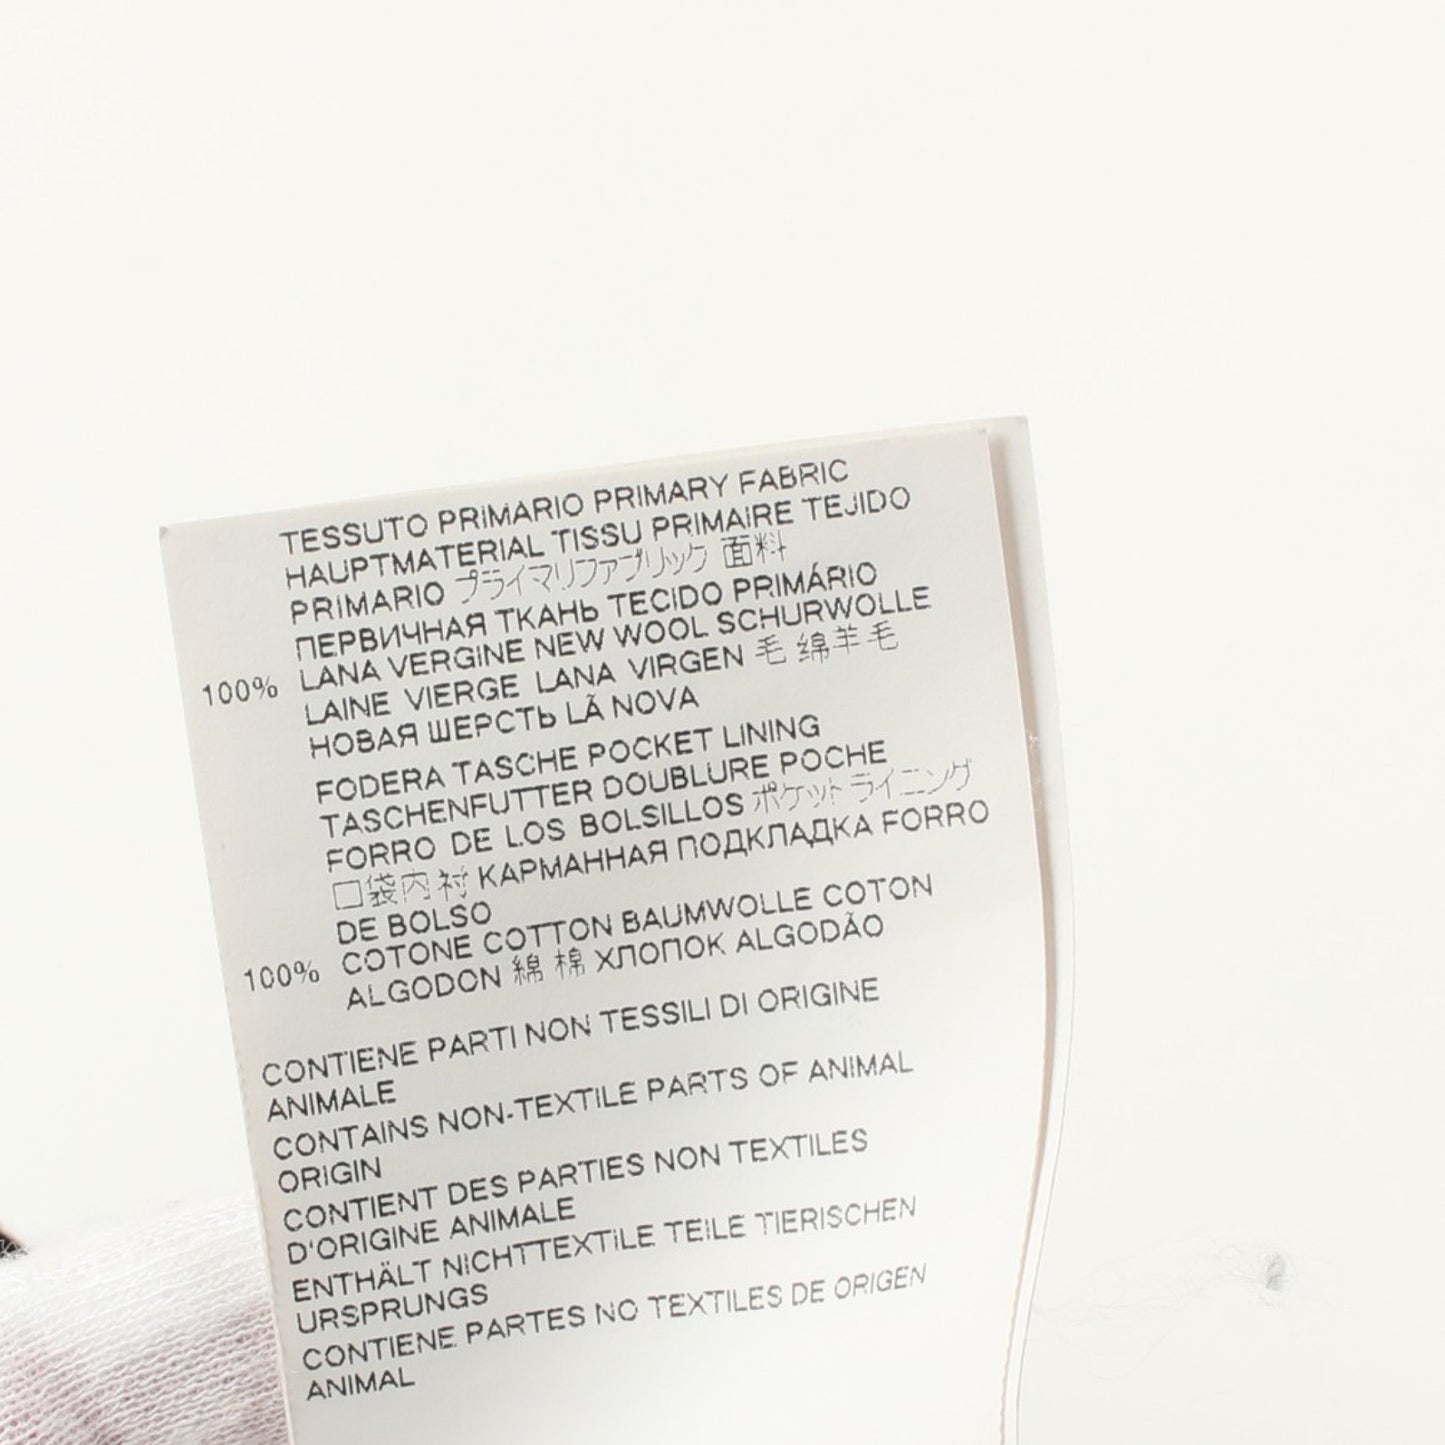 TESSUTO PRIMARIO PRIMARY FABRIC
HAUPTMATERIAL TISSU PRIMAIRE TEJIDO
PRIMARIO プライマリファブリック 面料
ПЕРВИЧНАЯ ТКАНЬ TECIDO PRIMÁRIO
100% LANA VERGINE NEW WOOL SCHURWOLLE
LAINE VIERGE LANA VIRGEN 毛 绵羊毛
НОВАЯ ШЕРСТЬ LÃ NOVA
FODERA TASCHE POCKET LINING
TASCHENFUTTER DOUBLURE POCHE
FORRO DE LOS BOLSILLOS ポケットライニング
口袋内衬 КАРМАННАЯ ПОДКЛАДКА FORRO
DE BOLSO
100% COTONE COTTON BAUMWOLLE COTON
ALGODON 綿 棉 ХЛОПОК ALGODÃO
CONTIENE PARTI NON TESSILI DI ORIGINE
ANIMALE
CONTAINS NON-TEXTILE PARTS OF ANIMAL
ORIGIN
CONTIENT DES PARTIES NON TEXTILES
D'ORIGINE ANIMALE
ENTHÄLT NICHTTEXTILE TEILE TIERISCHEN
URSPRUNGS
CONTIENE PARTES NO TEXTILES DE ORIGEN
ANIMAL